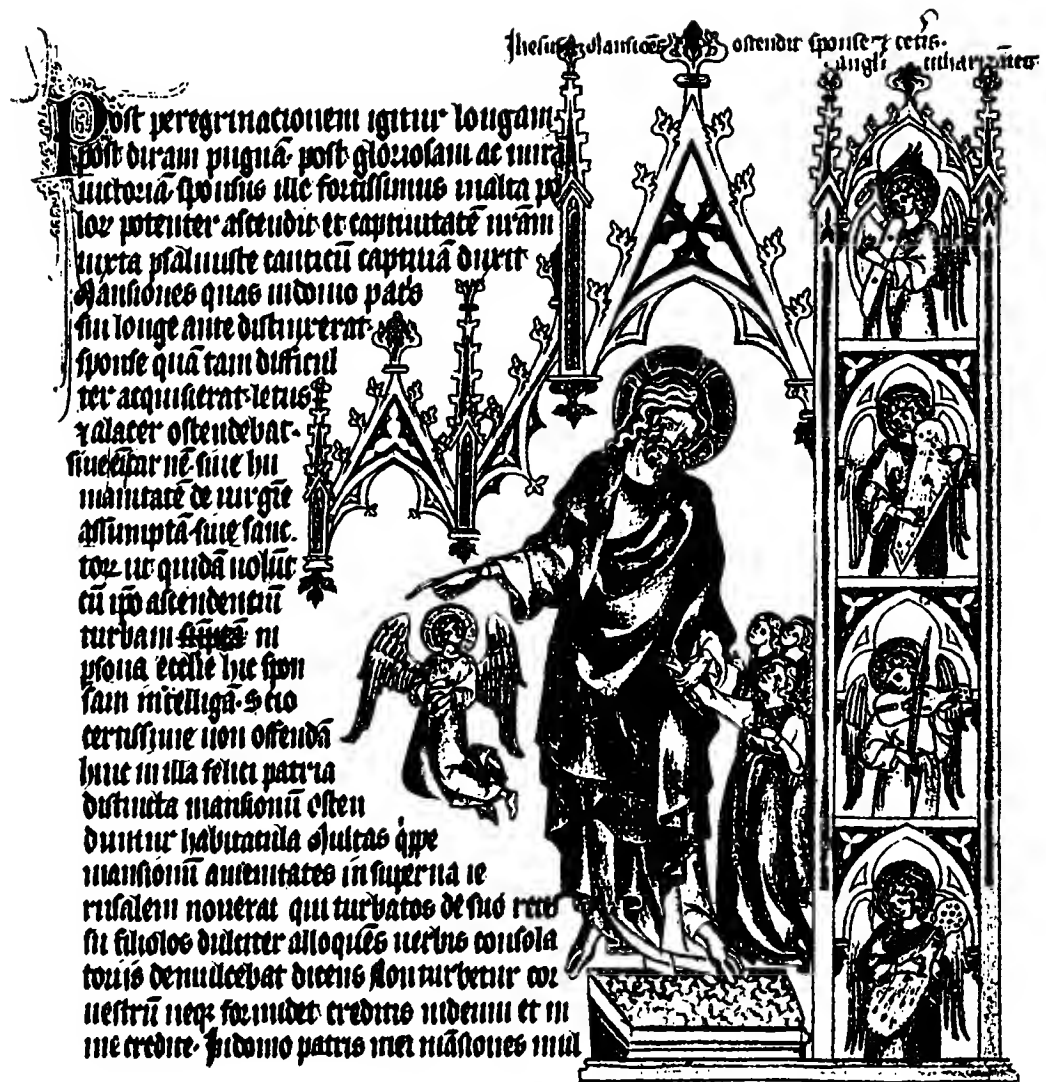 Ihesus Mansiōes ostendit sponse ⁊ cetis.
angli
Post peregrinacionem igitur longam
post diram pugnā. post gloriosam ac mira
uictoriā. sponsus ille fortissimus multa po
loꝝ potenter ascendit. et captiuitatē nrām
iuxta psalmiste canticū captiuā duxit
Mansiones quas indomo patris
sui longe ante distinxerat.
sponse quā tam difficul
ter acquisierat. letus
⁊ alacer ostendebat.
siue
manitatē de uirgīe
assumptā. siue sanc.
toꝝ ut quidā uolūt
cū ipō ascendentiū
turbam in
psona ecclie hic spon
sam intelligā. Scio
certissime non offendā
huic in illa felici patria
distincta mansionū osten
duntur habitacula Multas q̄ppe
mansionū amenitates in superna ie
rusalem nouerat qui turbatos de suo reces
su filiolos dulciter alloquēs uerbis consola
torijs demulcebat dicens Non turbetur cor
uestrū neqꝫ formidet. creditis indeum et in
me credite. Indomo patris mei māsiones mul